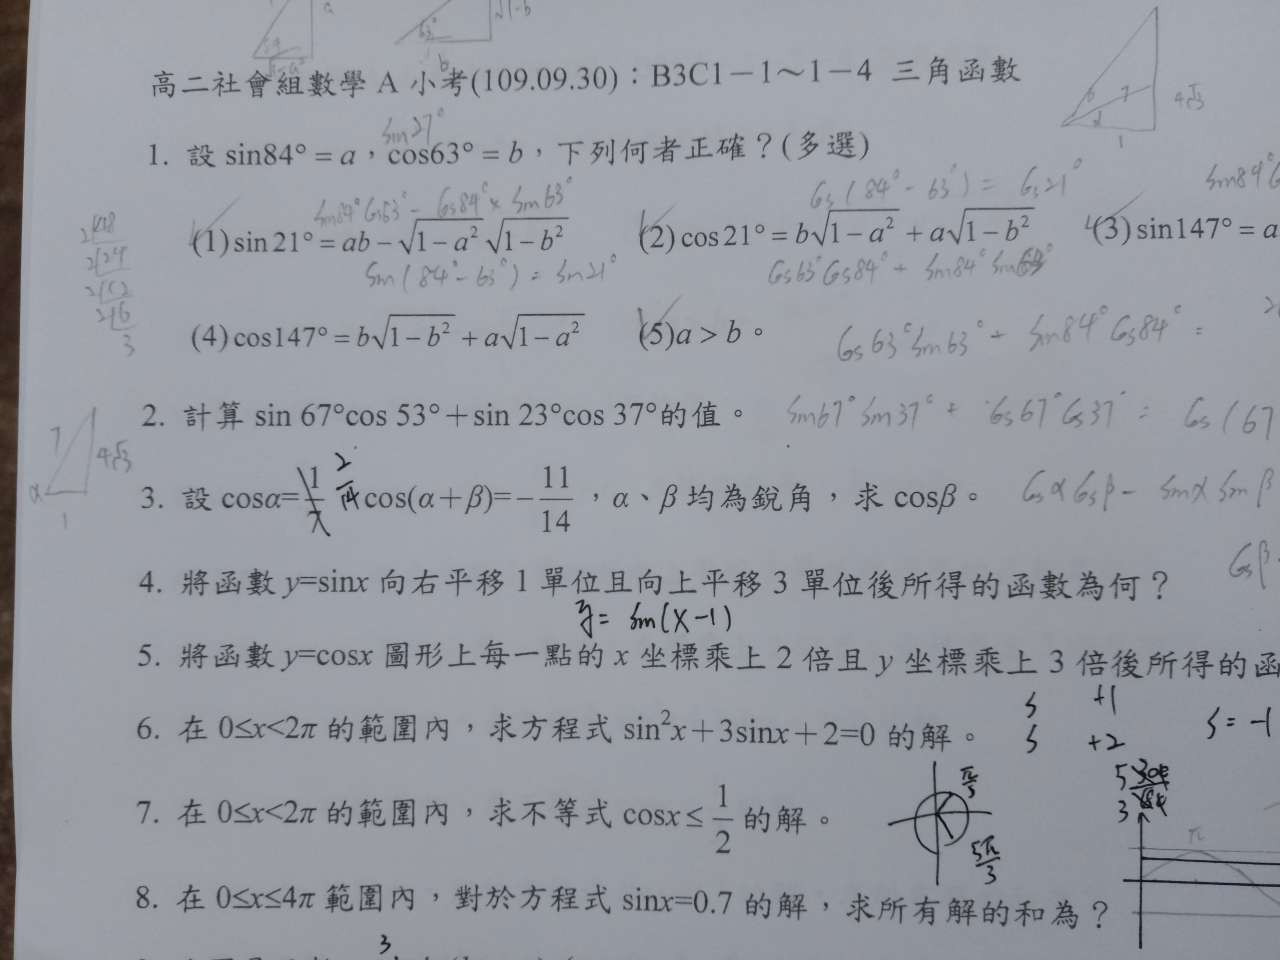 a
b
高二社會組數學 A 小考(109.09.30)：B3C1－1～1－4 三角函數
6 7 4√3
α
1
sin27°
1. 設 sin84° = a，cos63° = b，下列何者正確？(多選)
cos(84° - 63°) = cos21°
sin84°cos63° - cos84° × sin63°
(1) sin 21° = ab − √(1−a²) √(1−b²) (2) cos 21° = b√(1−a²) + a√(1−b²) (3) sin147° = a
sin(84° - 63°) = sin21° cos63°cos84° + sin84° sin63°
(4) cos147° = b√(1−b²) + a√(1−a²) (5) a > b。
cos63°sin63° + sin84°cos84° =
2. 計算 sin 67°cos 53°＋sin 23°cos 37°的值。 sin67° sin37° + cos67°cos37° = cos(67
7 4√3
α
1
3. 設 cosα=1/7 cos(α＋β)=−11/14，α、β 均為銳角，求 cosβ。 cosα cosβ - sinα sinβ
2/14
cosβ
4. 將函數 y=sinx 向右平移 1 單位且向上平移 3 單位後所得的函數為何？
y = sin(x-1)
5. 將函數 y=cosx 圖形上每一點的 x 坐標乘上 2 倍且 y 坐標乘上 3 倍後所得的函
s +1
6. 在 0≤x<2π 的範圍內，求方程式 sin²x＋3sinx＋2=0 的解。 s +2 s = -1
7. 在 0≤x<2π 的範圍內，求不等式 cosx ≤ 1/2 的解。
π/3
5π/3
π
8. 在 0≤x≤4π 範圍內，對於方程式 sinx=0.7 的解，求所有解的和為？
3